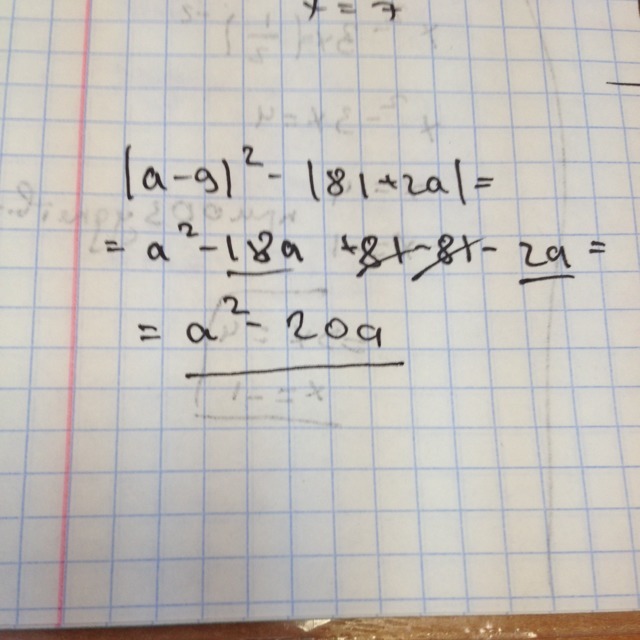 x = 7
(a-9)² - (81+2a) =
= a² - 18a + 81 - 81 - 2a =
= a² - 20a